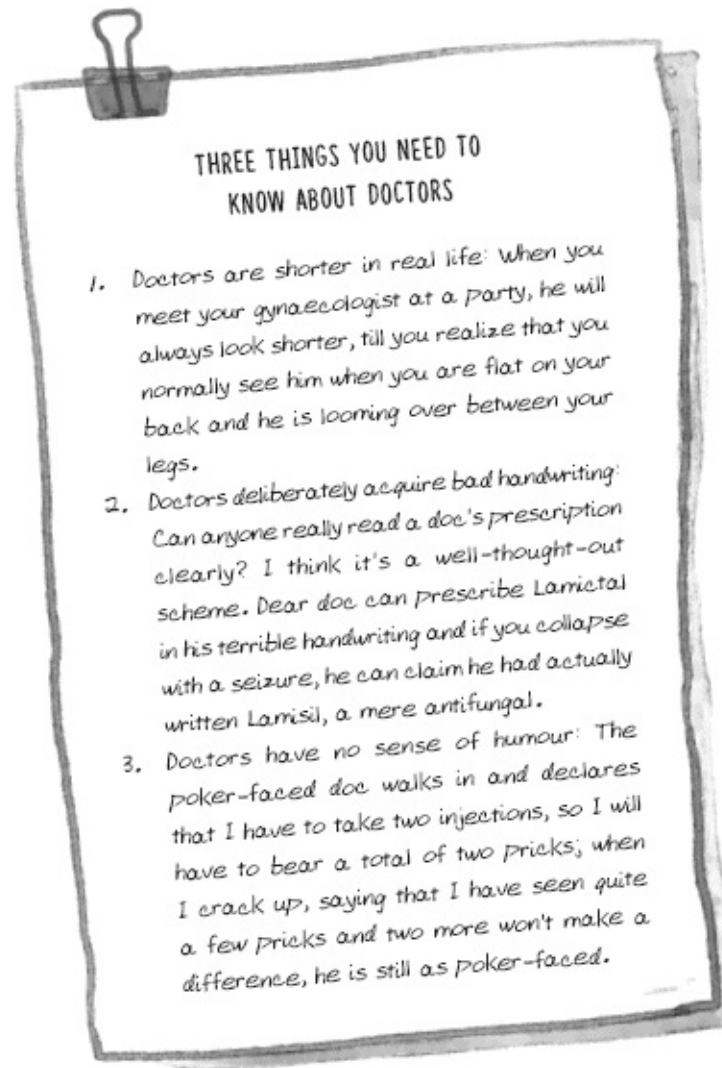 THREE THINGS YOU NEED TO
KNOW ABOUT DOCTORS
1. Doctors are shorter in real life: When you
meet your gynaecologist at a party, he will
always look shorter, till you realize that you
normally see him when you are flat on your
back and he is looming over between your
legs.
2. Doctors deliberately acquire bad handwriting:
Can anyone really read a doc's prescription
clearly? I think it's a well-thought-out
scheme. Dear doc can prescribe Lamictal
in his terrible handwriting and if you collapse
with a seizure, he can claim he had actually
written Lamisil, a mere antifungal.
3. Doctors have no sense of humour: The
poker-faced doc walks in and declares
that I have to take two injections, so I will
have to bear a total of two pricks; when
I crack up, saying that I have seen quite
a few pricks and two more won't make a
difference, he is still as poker-faced.